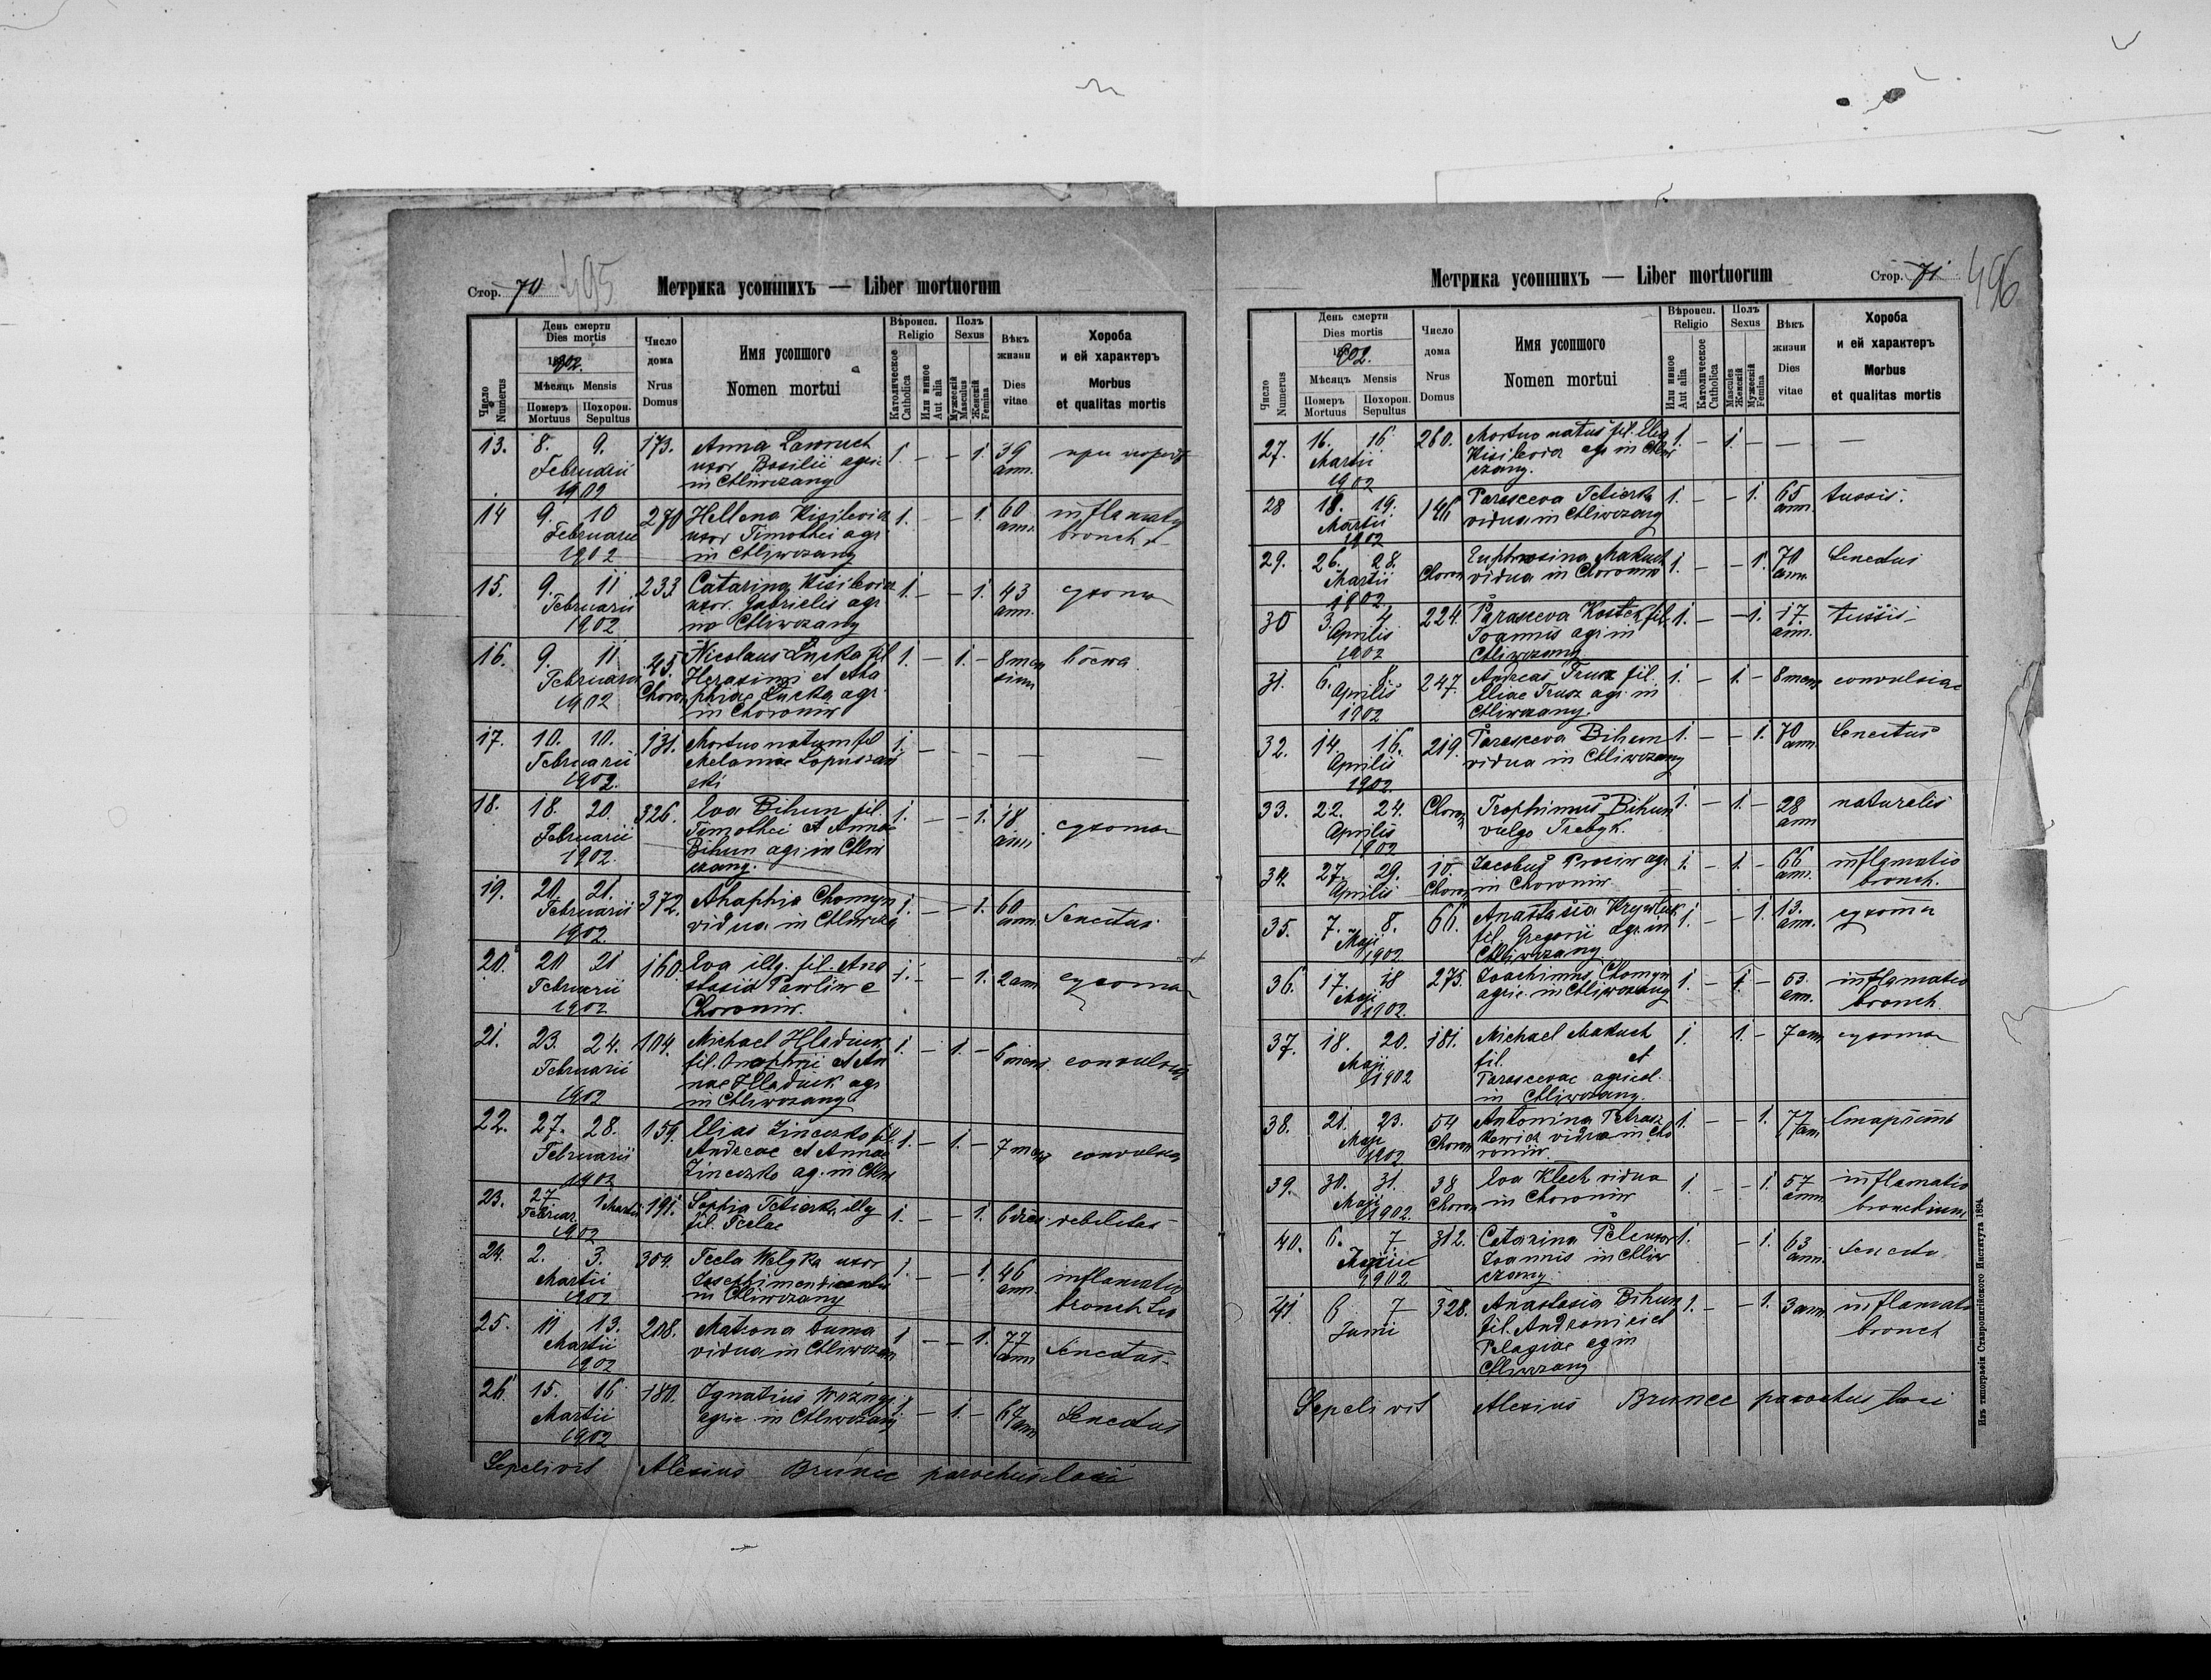 Стор. 70 495
Метрика усопшихъ — Liber mortuorum
Число Numerus
День смерти Dies mortis 1902.
Мѣсяць Mensis
Померъ Mortuus
Похорон. Sepultus
Число дома Nrus Domus
Имя усопшого Nomen mortui
Вѣроисп. Religio
Католическое Catholica
Или инное Aut alia
Полъ Sexus
Мужескій Masculus
Женскій Femina
Вѣкъ жизни Dies vitae
Хороба и ей характеръ Morbus et qualitas mortis
13. 8. 9. 173. Anna Lawruch 1. — — 1. 39
Februarii uxor Basilii agric ann.
1902 in Chliwczany
14 9. 10 270 Hellena Kisilevia 1. — — 1. 60
Februarii uxor Timothei agr. ann. bronch
1902 in Chliwczany
15. 9. 11 233 Catarina Kisilevia 1. — — 1. 43
Februarii uxor. Gabrielis agr ann.
1902 Chliwczany
16. 9. 11 45 Nicolaus Lucka fil 1. — 1. — 8 men
Februarii Choron Herasimi et Aha
1902 phiae Lucka agr.
in Choroniw
17. 10. 10. 131. Mortuo natum fil 1. — — — — —
Februarii Melaniae Lopuszan
1902. ski
18. 18. 20. 326. Eva Bihun fil. 1. — — 1. 18 сухоты
Februarii Timothei et Annae ann.
1902. Bihun agr. in Chliw
czany.
19. 20. 21. 372. Ahaphia Chomyn 1. — — 1. 60 Senectus
Februarii vidua in Chliwcza ann.
1902.
20. 20 21 160 Eva illg. fil. Ana 1. — — 1. 2 ann
Februarii stasia Pawliw e
1902 Choroniw.
21. 23. 24. 104. Michael Hladiuk 1. — 1. — 6 mens
Februarii fil. Onophrii et An
1902 nae Hladiuk agr
in Chliwczany
22. 27. 28. 159. Elias Zinczko fil. 1. — 1. — 7 mens
Februarii Andreae et Annae
1902 Zinczko ag. in Chliw
23. 27 1 Martii 191. Sophia Tetierka illg 1. — — 1. 6 dies debilitas
Februar. fil. Teclae
1902
24. 2. 3. 304. Tecla Welyka uxor 1. — — 1. 46 inflamatio
Martii ann.
1902 in Chliwczany
25. 11 13. 208. Matrona Duma 1 — — 1. 77 Senectus
Martii vidua in Chliwczan ann
1902
26 15. 16 180. Ignatius Woźnyj 1. — 1. — 67 Senectus
Martii agric in Chliwczany ann
1902
Sepelivit Alexius Brunec parochus loci
Метрика усопшихъ — Liber mortuorum
Стор. 71 496
Число Numerus
День смерти Dies mortis 1902.
Мѣсяцъ Mensis
Померъ Mortuus
Похорон. Sepultus
Число дома Nrus Domus
Имя усопшого Nomen mortui
Вѣроисп. Religio
Или инное Aut alia
Католическое Catholica
Полъ Sexus
Masculus Женскій
Мужескій Femina
Вѣкъ жизни Dies vitae
Хороба и ей характеръ Morbus et qualitas mortis
27. 16. 16 260. Mortuo natus fil. Elia 1. — 1. — — —
Martii Kisilevia agr in Chliw
1902 czany.
28 18. 19. 146 Parasceva Tetierka 1. — — 1. 65 tussis.
Martii vidua in Chliwczany ann.
1902
29. 26. 28. Choron Euphrosina Makuch 1. — — 1. 70 Senectus
Martii vidua in Choroniw ann.
1902
30 3. 4. 224. Parasceva Kostek fil. 1. — — 1. 17. tussis
Aprilis Joannis agr in ann.
1902 Chliwczany
31. 6. 8. 247. Andreas Trusz fil. 1. — 1. — 8 mens convulsiae
Aprilis Eliae Trusz agr. in
1902 Chliwczany.
32. 14. 16. 219. Parasceva Bihun 1. — — 1. 70 Senectus
Aprilis vidua in Chliwczany ann.
1902.
33. 22. 24. Choron Trophimus Bihun 1. — 1. — 28 naturalis
Aprilis vulgo Trebyk. ann
1902
34. 27. 29. 10. Jacobus Prociw agr 1. — 1. — 66 inflamatio
Aprilis Choron in Choroniw. ann. bronch.
35. 7. 8. 66. Anastasia Krywluk 1. — — 1. 13. сухоты
Maji fil. Gregorii agr. in ann.
1902 Chliwczany
36. 17. 18 275. Joachimus Chomyn 1. — 1. — 53. inflamatio
Maji agric. in Chliwczany ann. bronch
1902.
37. 18. 20. 181. Michael Makuch 1. 1. — 7 ann
Maji fil. et
1902 Parascevae agricol.
in Chliwczany.
38. 21. 23. 54 Antonina Petrasz 1. — — 1. 77
Maji Choron kewicz vidua in Cho ann.
1902 roniw.
39. 30. 31. 38 Eva Klech vidua 1. — — 1. 57 inflamatio
Maji Choron in Choroniw ann. bronchium
1902.
40. 6. 7 312. Catarina 1. — 1. 63
Joannis in Chliw ann.
1902 czany
41. 6 7 328. Anastasia Bihun 1. — — 1. 3 ann. inflamatio
Junii fil. Andronici et bronch
Pelagiae ag in
Chliwczany
Sepelivit Alexius Brunec parochus loci
Изъ типографіи Ставропигійского Института 1894.